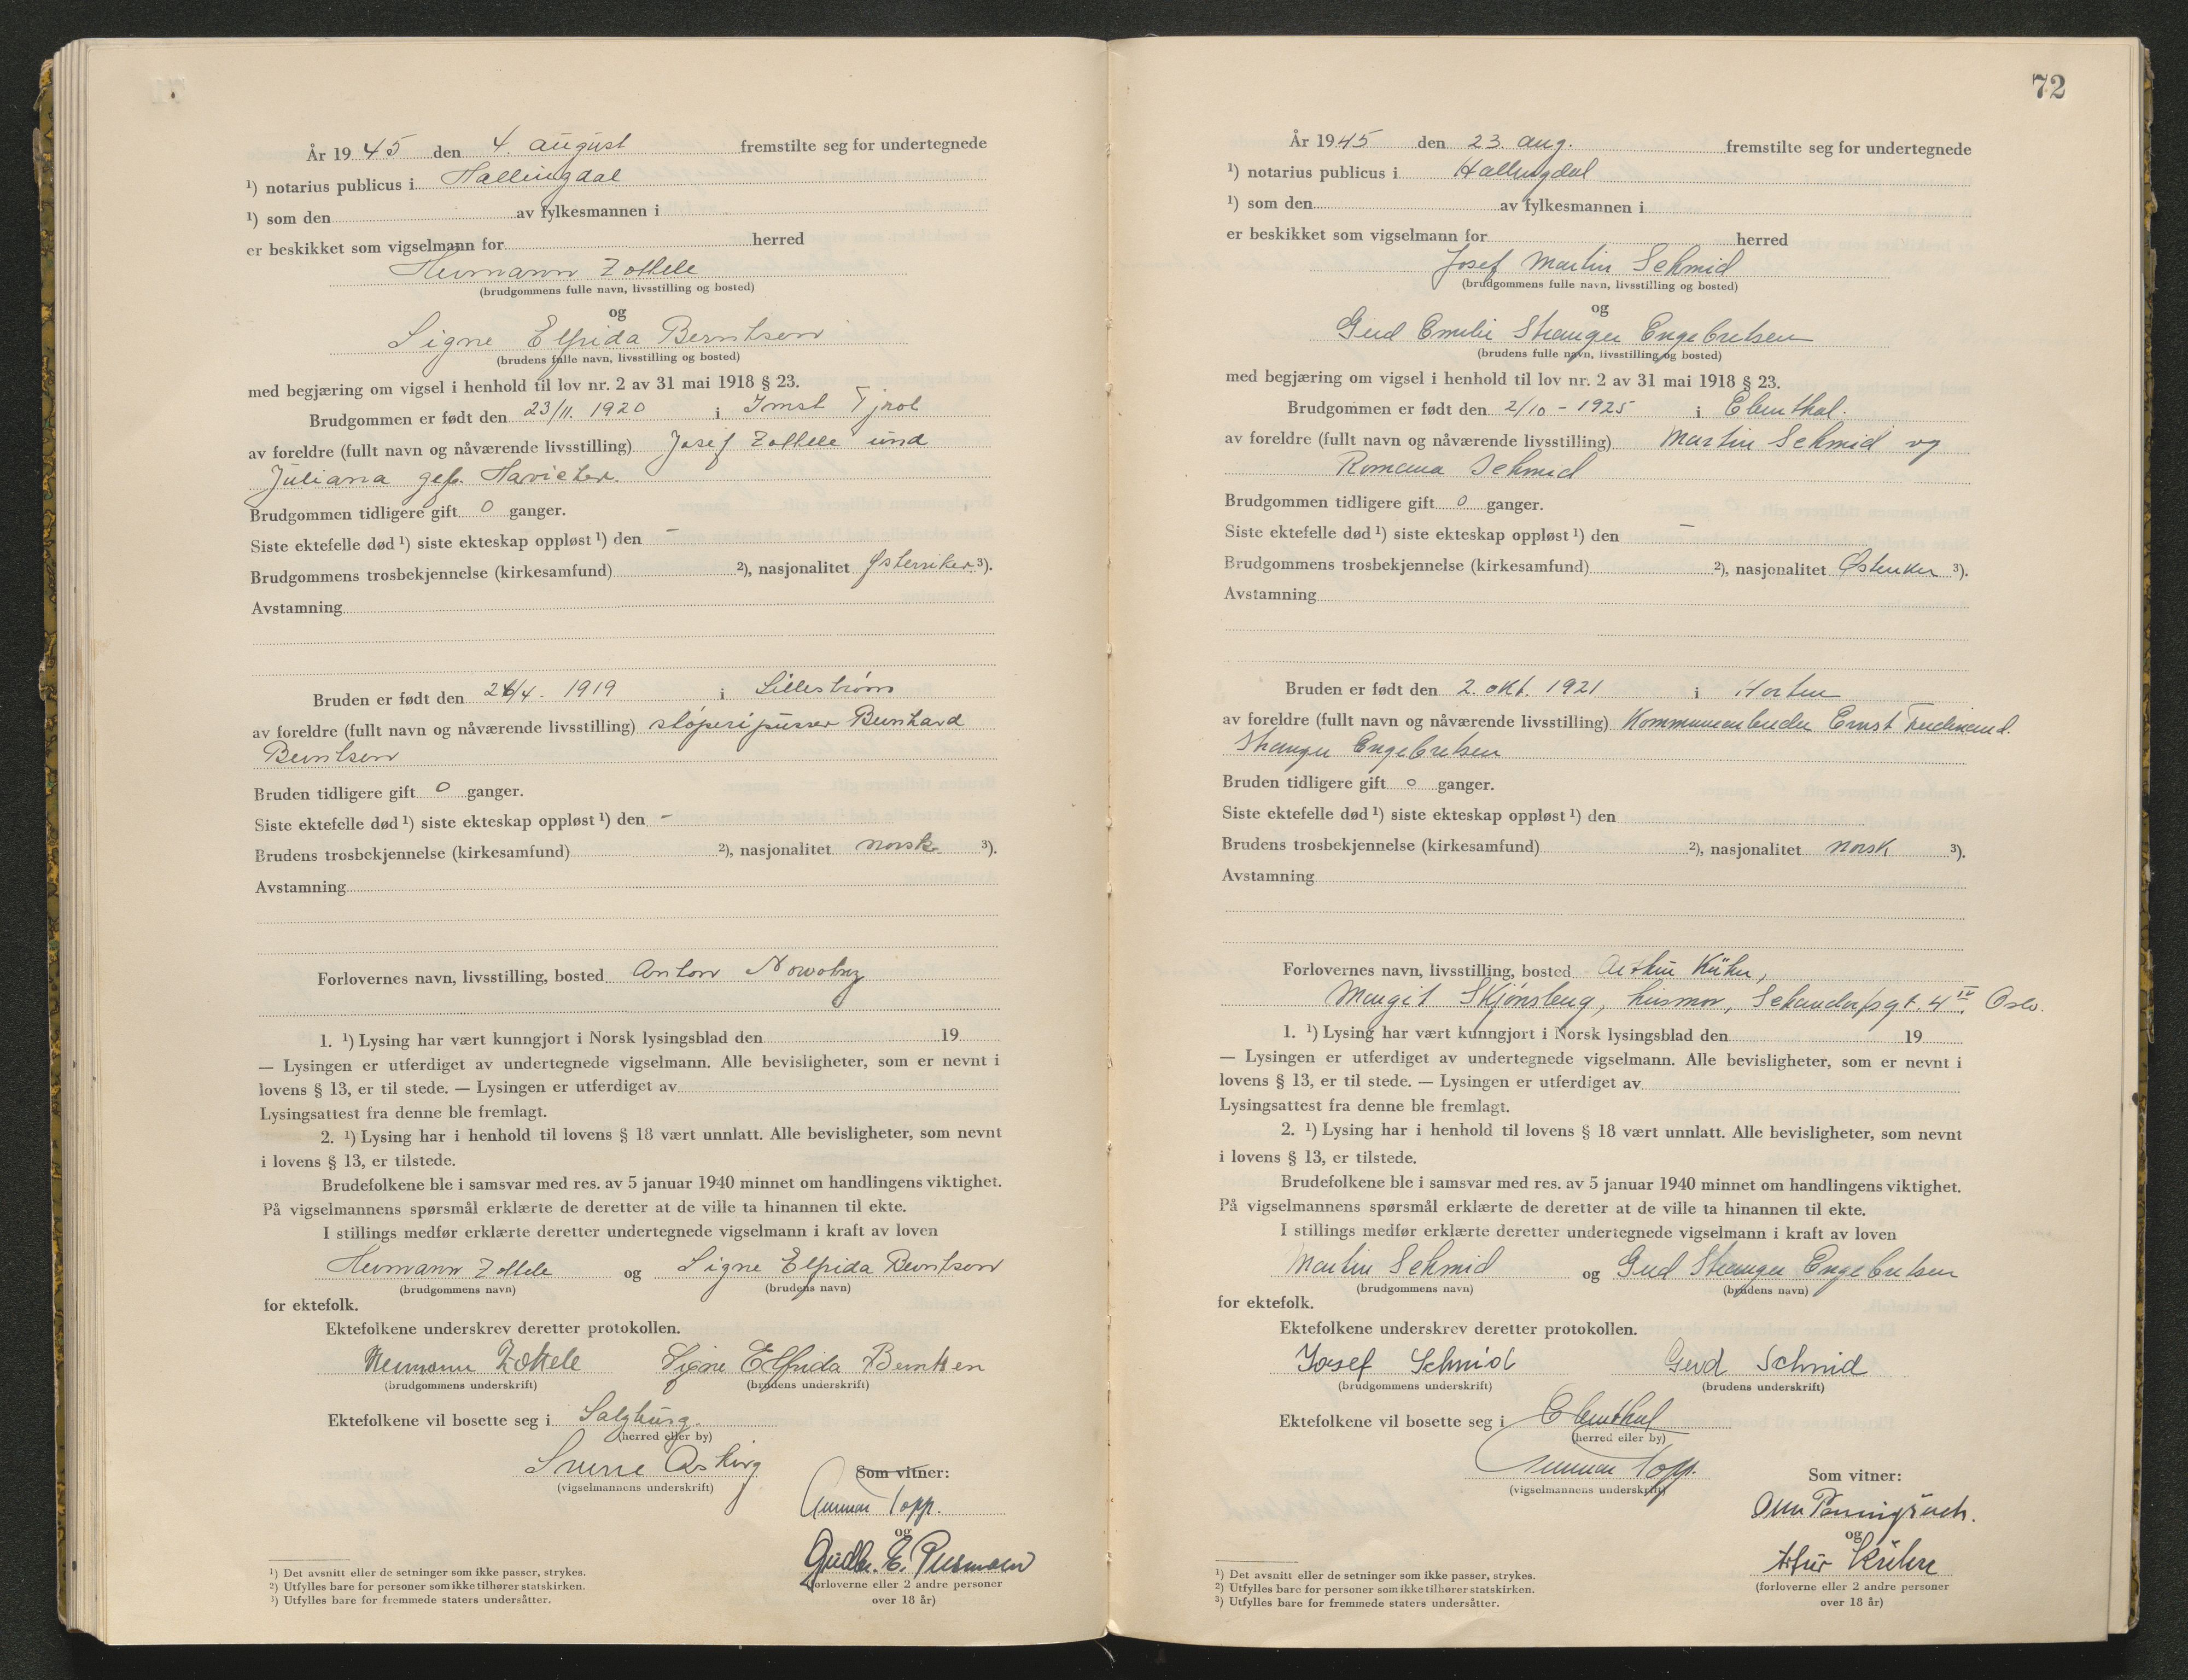 År 1945 den 4. august fremstilte seg for undertegnede
¹) notarius publicus i Hallingdal
¹) som den av fylkesmannen i
er beskikket som vigselmann for herred
Hermann Zottele
(brudgommens fulle navn, livsstilling og bosted)
og
Signe Elfrida Berntsen
(brudens fulle navn, livsstilling og bosted)
med begjæring om vigsel i henhold til lov nr. 2 av 31 mai 1918 § 23.
Brudgommen er født den 23/11. 1920 i Imst Tjrol
av foreldre (fullt navn og nåværende livsstilling) Josef Zottele und
Juliana geb. Havicher.
Brudgommen tidligere gift 0 ganger.
Siste ektefelle død ¹) siste ekteskap oppløst ¹) den –
Brudgommens trosbekjennelse (kirkesamfund) ²), nasjonalitet Østerriker ³).
Avstamning
Bruden er født den 26/4. 1919 i Lillestrøm
av foreldre (fullt navn og nåværende livsstilling) støperipusser Bernhard
Berntsen
Bruden tidligere gift 0 ganger.
Siste ektefelle død ¹) siste ekteskap oppløst ¹) den –
Brudens trosbekjennelse (kirkesamfund) ²), nasjonalitet norsk ³).
Avstamning
Forlovernes navn, livsstilling, bosted Anton Nowotny
1. ¹) Lysing har vært kunngjort i Norsk lysingsblad den 19
— Lysingen er utferdiget av undertegnede vigselmann. Alle bevisligheter, som er nevnt i
lovens § 13, er til stede. — Lysingen er utferdiget av
Lysingsattest fra denne ble fremlagt.
2. ¹) Lysing har i henhold til lovens § 18 vært unnlatt. Alle bevisligheter, som nevnt
i lovens § 13, er tilstede.
Brudefolkene ble i samsvar med res. av 5 januar 1940 minnet om handlingens viktighet.
På vigselmannens spørsmål erklærte de deretter at de ville ta hinannen til ekte.
I stillings medfør erklærte deretter undertegnede vigselmann i kraft av loven
Hermann Zottele og Signe Elfrida Berntsen
(brudgommens navn) (brudens navn)
for ektefolk.
Ektefolkene underskrev deretter protokollen.
Hermann Zottele Signe Elfrida Berntsen
(brudgommens underskrift) (brudens underskrift)
Ektefolkene vil bosette seg i Salzburg.
(herred eller by)
Sverre Asking
(vigselmannens underskrift)
Som vitner:
Gunnar Topp.
og
Gudbr. E.
(forloverne eller 2 andre personer
over 18 år)
¹) Det avsnitt eller de setninger som ikke passer, strykes.
²) Utfylles bare for personer som ikke tilhører statskirken.
³) Utfylles bare for fremmede staters undersåtter.
72
År 1945 den 23. aug. fremstilte seg for undertegnede
¹) notarius publicus i Hallingdal
¹) som den av fylkesmannen i
er beskikket som vigselmann for herred
Josef Martin Schmid
(brudgommens fulle navn, livsstilling og bosted)
og
Gerd Emilie Stranger Engebretsen
(brudens fulle navn, livsstilling og bosted)
med begjæring om vigsel i henhold til lov nr. 2 av 31 mai 1918 § 23.
Brudgommen er født den 2/10 – 1925 i Ebenthal.
av foreldre (fullt navn og nåværende livsstilling) Martin Schmid og
Romana Schmid
Brudgommen tidligere gift 0 ganger.
Siste ektefelle død ¹) siste ekteskap oppløst ¹) den –
Brudgommens trosbekjennelse (kirkesamfund) ²), nasjonalitet Østeriker ³).
Avstamning
Bruden er født den 2. okt. 1921 i Horten
av foreldre (fullt navn og nåværende livsstilling) Kommunearbeider Ernst Ferdinand
Stranger Engebretsen
Bruden tidligere gift 0 ganger.
Siste ektefelle død ¹) siste ekteskap oppløst ¹) den
Brudens trosbekjennelse (kirkesamfund) ²), nasjonalitet norsk ³).
Avstamning
Forlovernes navn, livsstilling, bosted Arthur Kühn,
Margit Skjønsberg, husmor, Schandorfsgt. 4 IV. Oslo.
1. ¹) Lysing har vært kunngjort i Norsk lysingsblad den 19
— Lysingen er utferdiget av undertegnede vigselmann. Alle bevisligheter, som er nevnt i
lovens § 13, er til stede. — Lysingen er utferdiget av
Lysingsattest fra denne ble fremlagt.
2. ¹) Lysing har i henhold til lovens § 18 vært unnlatt. Alle bevisligheter, som nevnt
i lovens § 13, er tilstede.
Brudefolkene ble i samsvar med res. av 5 januar 1940 minnet om handlingens viktighet.
På vigselmannens spørsmål erklærte de deretter at de ville ta hinannen til ekte.
I stillings medfør erklærte deretter undertegnede vigselmann i kraft av loven
Martin Schmid og Gerd Stranger Engebretsen
(brudgommens navn) (brudens navn)
for ektefolk.
Ektefolkene underskrev deretter protokollen.
Josef Schmid Gerd Schmid
(brudgommens underskrift) (brudens underskrift)
Ektefolkene vil bosette seg i Ebenthal
(herred eller by)
Gunnar Topp.
(vigselmannens underskrift)
Som vitner:
og
Artur Kühn
(forloverne eller 2 andre personer
over 18 år)
¹) Det avsnitt eller de setninger som ikke passer, strykes.
²) Utfylles bare for personer som ikke tilhører statskirken.
³) Utfylles bare for fremmede staters undersåtter.